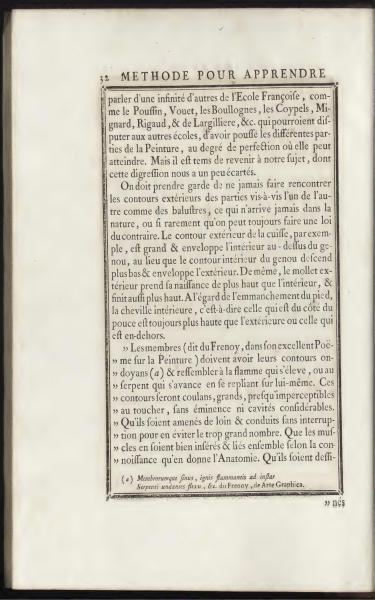 32 METHODE POUR APPRENDRE
parler d'une infinité d'autres de l'Ecole Françoise, com-
me le Poussin, Vouet, les Boullognes, les Coypels, Mi-
gnard, Rigaud, & de Largilliere, &c. qui pourroient dis-
puter aux autres écoles, d'avoir poussé les différentes par-
ties de la Peinture, au degré de perfection où elle peut
atteindre. Mais il est tems de revenir à notre sujet, dont
cette digression nous a un peu écartés.
On doit prendre garde de ne jamais faire rencontrer
les contours extérieurs des parties vis-à-vis l'un de l'au-
tre comme des balustres, ce qui n'arrive jamais dans la
nature, ou si rarement qu'on peut toujours faire une loi
du contraire. Le contour extérieur de la cuisse, par exem-
ple, est grand & enveloppe l'intérieur au-dessus du ge-
nou, au lieu que le contour intérieur du genou descend
plus bas & enveloppe l'extérieur. De même, le mollet ex-
térieur prend sa naissance de plus haut que l'intérieur, &
finit aussi plus haut. A l'égard de l'emmanchement du pied,
la cheville intérieure, c'est-à-dire celle qui est du côté du
pouce est toujours plus haute que l'extérieure ou celle qui
est en-dehors.
» Les membres (dit du Frenoy, dans son excellent Poë-
» me sur la Peinture) doivent avoir leurs contours on-
» doyans (a) & ressembler à la flamme qui s'éleve, ou au
» serpent qui s'avance en se repliant sur lui-même. Ces
» contours seront coulans, grands, presqu'imperceptibles
» au toucher, sans éminence ni cavités considérables.
» Qu'ils soient amenés de loin & conduits sans interrup-
» tion pour en éviter le trop grand nombre. Que les mus-
» cles en soient bien insérés & liés ensemble selon la con-
» noissance qu'en donne l'Anatomie. Qu'ils soient dessi-
(a) Membrorumque sinus, ignis flammantis ad instar
Serpenti undantes flexu, &c. du Frenoy, de Arte Graphica.
» nés